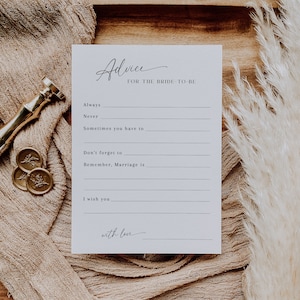 Advice
FOR THE BRIDE TO BE
Always
Never
Sometimes you have to
Don't forget to
Remember, Marriage is
I wish you
with love